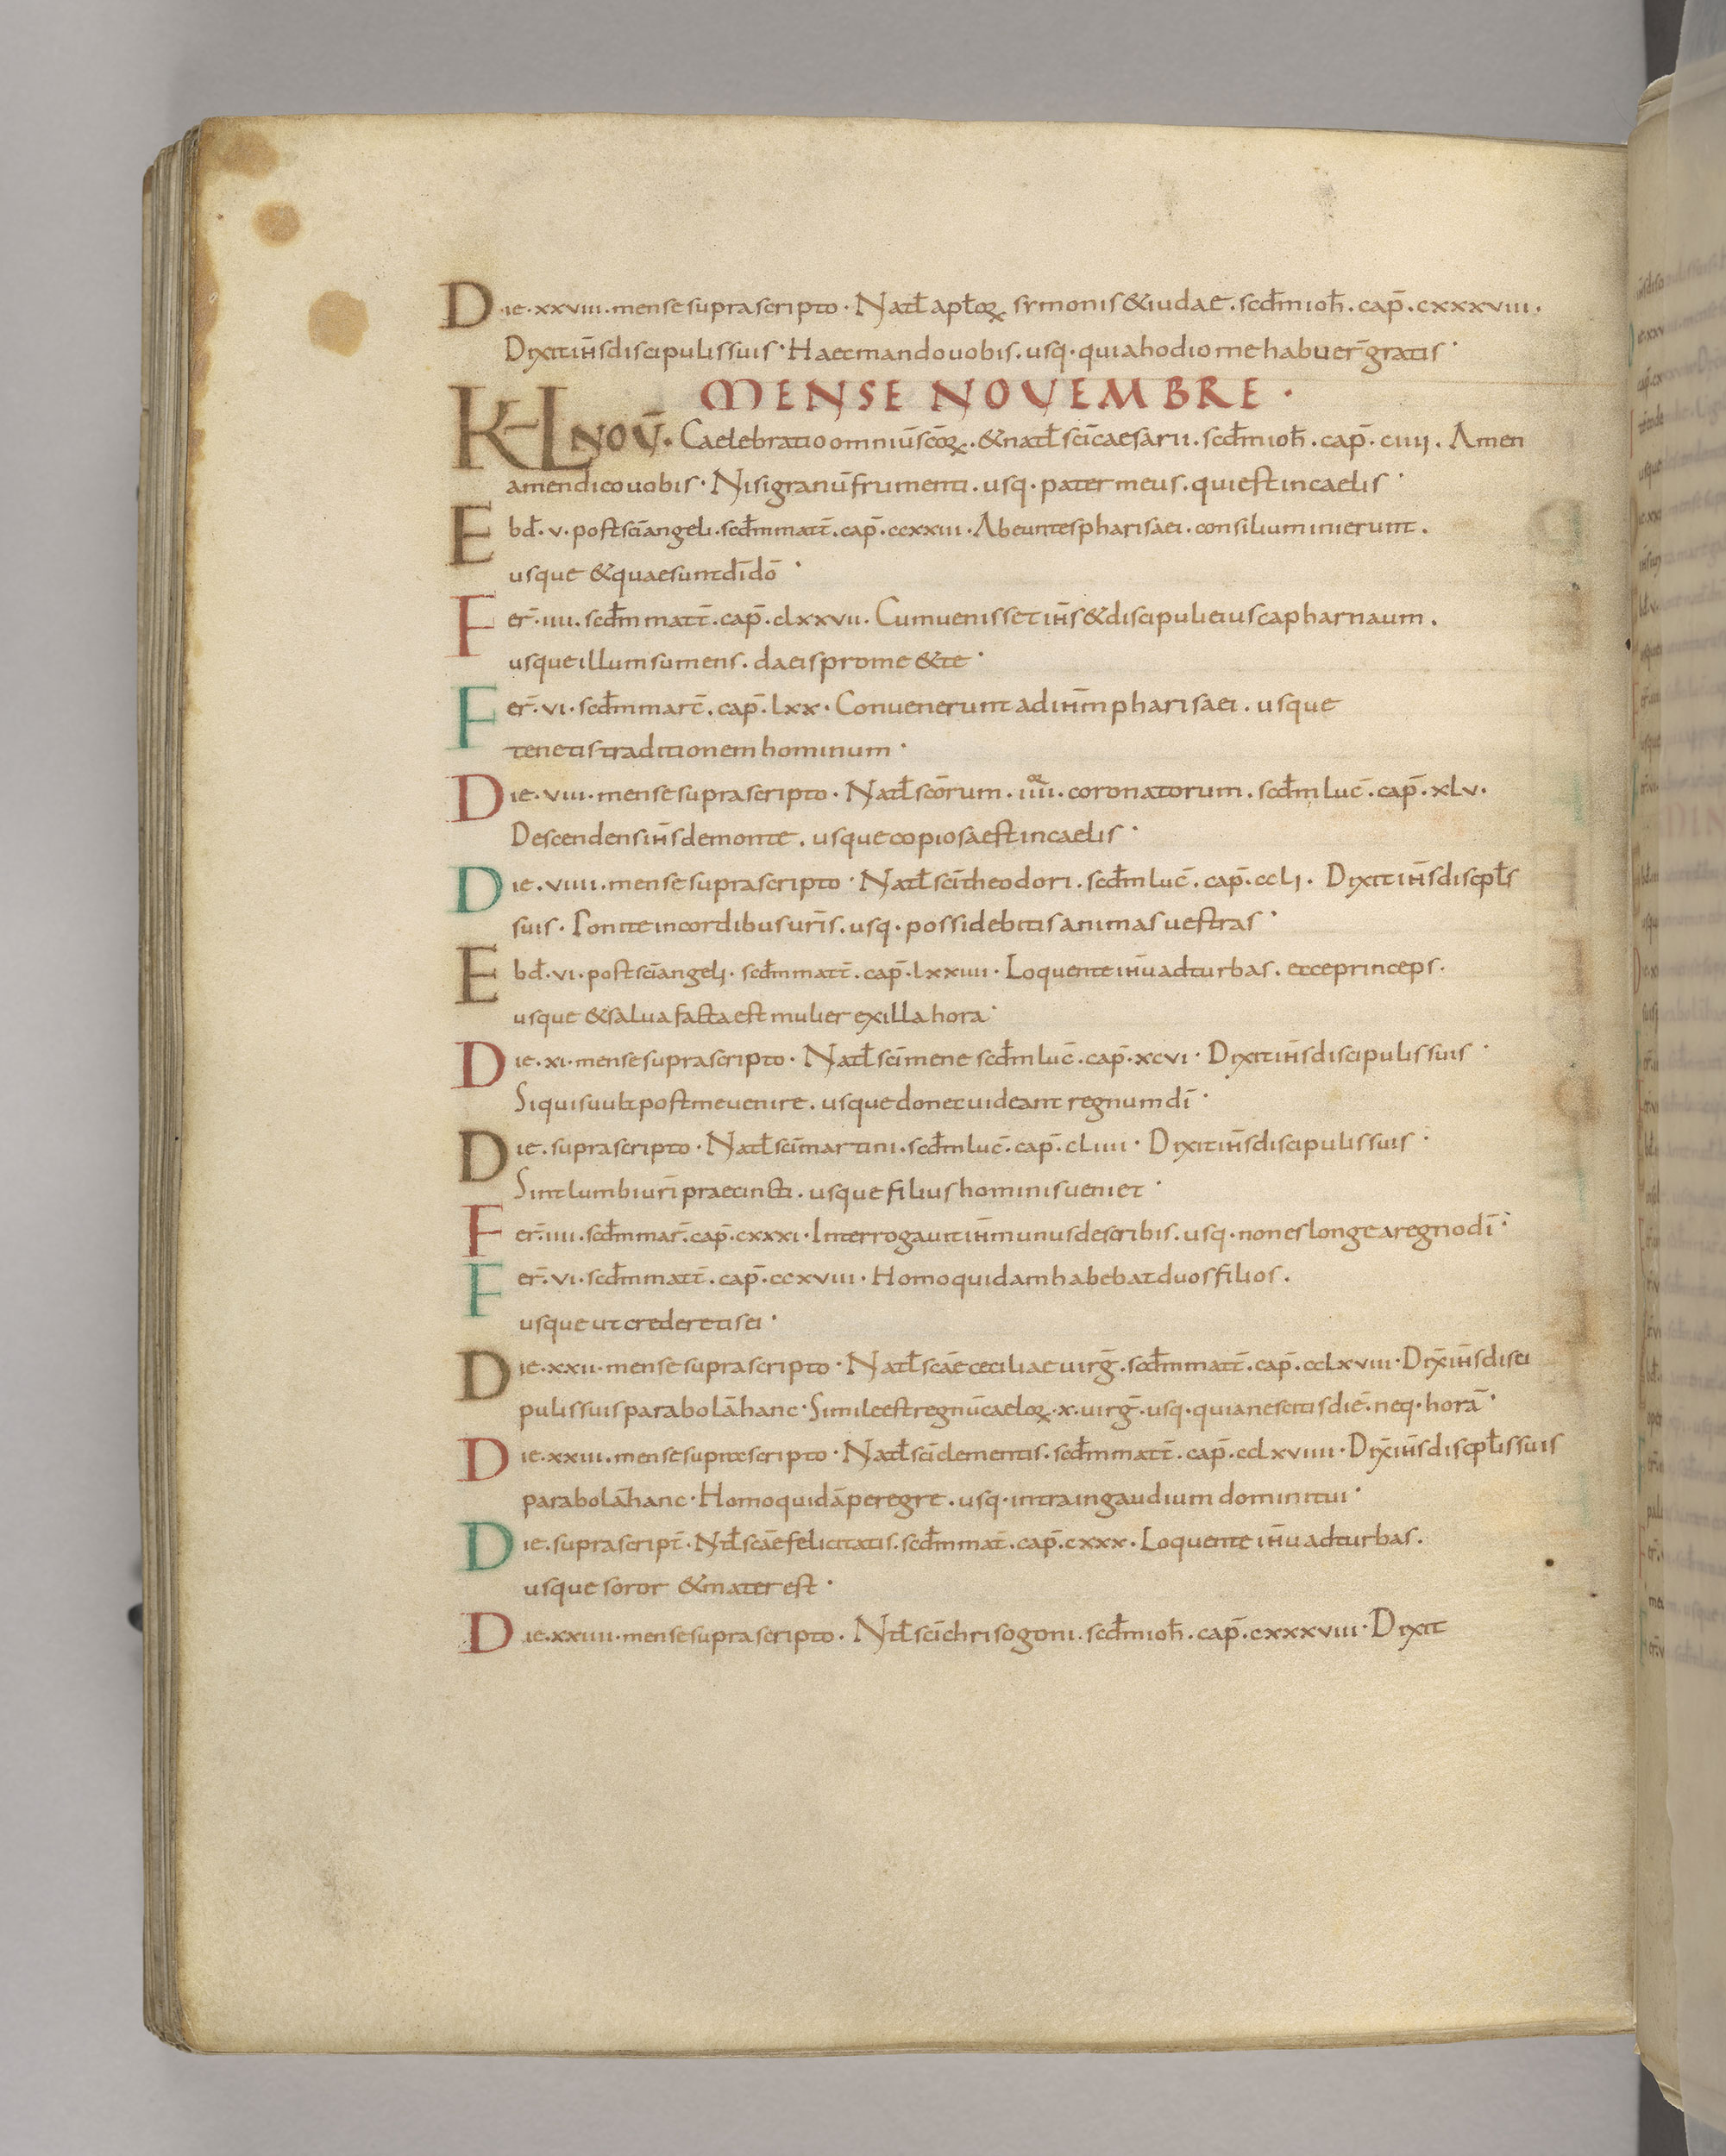 Die · xxviii · mense suprascripto · Natł apłoꝝ symonis & iudae . scdm ioh̄ . cap̄ . cxxxviii .
Dixit ih̄s discipulis suis · Haec mando uobis . usq · quia hodio me habuer̄ gratis ·
MENSE NOUEMBRE ·
KL NOU̅ · Caelebratio omniū scōꝝ . & natł sc̄i caesarii . scdm ioh̄ . cap̄ . ciiij . Amen
amen dico uobis · Nisi granū frumenti . usq · pater meus . qui est in caelis ·
Ebd̄ · v · post sc̄i angeli . scdm matt̄ . cap̄ . ccxxiii · Abeuntes pharisaei . consilium inierunt .
usque & quae sunt dī dō ·
Fer̄ · iiii . scdm matt̄ . cap̄ . clxxvii · Cum uenisset ih̄s & discipuli eius capharnaum .
usque illum sumens . da eis pro me & te ·
Fer̄ · vi · scdm marc̄ . cap̄ . lxx · Conuenerunt ad ih̄m pharisaei . usque
tenetis traditionem hominum ·
Die · viii · mense suprascripto · Natł scōrum . iiiioꝝ . coronatorum . scdm luc̄ . cap̄ . xlv .
Descendens ih̄s de monte . usque copiosa est in caelis ·
Die . viiii . mense suprascripto · Natł sc̄i theodori . scdm luc̄ . cap̄ . cclj . Dixit ih̄s discpłs
suis . Ponite in cordibus ur̄is . usq · possidebitis animas uestras ·
Ebd̄ · vi · post sc̄i angelj · scdm matt̄ . cap̄ . lxxiiii · Loquente ih̄u ad turbas . ecce princeps .
usque & salua facta est mulier ex illa hora ·
Die . xi · mense suprascripto · Natł sc̄i mene scdm luc̄ . cap̄ · xcvi · Dixit ih̄s discipulis suis ·
Si quis uult post me uenire . usque donec uideant regnum dī ·
Die . suprascripto · Natł sc̄i martini . scdm luc̄ . cap̄ . cliiii · Dixit ih̄s discipulis suis ·
Sint lumbi uri̅ praecincti . usque filius hominis ueniet ·
Fer̄ . iiii . scdm mar̄ . cap̄ . cxxxi · Interrogauit ih̄m unus de scribis . usq · non es longe a regno dī ·
Fer̄ · vi · scdm matt̄ . cap̄ . ccxviii · Homo quidam habebat duos filios .
usque ut crederetis ei ·
Die . xxii · mense suprascripto · Natł scāe ceciliae uirg̅ . scdm matt̄ . cap̄ . cclxviii · Dix̄ ih̄s disci
pulis suis parabolā hanc · Simile est regnū caeloꝝ . x . uirg̅ . usq · quia nescitis diē . neq · horā ·
Die . xxiii . mense suprascripto · Natł sc̄i clementis . scdm matt̄ . cap̄ . cclxviiii · Dix̄ ih̄s discpłis suis
parabolā hanc · Homo quidā peregre . usq · intra in gaudium domini tui ·
Die . suprascript̄ · Ntł scāe felicitatis . scdm mat̄ . cap̄ . cxxx · Loquente ih̄u ad turbas .
usque soror & mater est ·
Die . xxiiii · mense suprascripto . Ntł sc̄i chrisogoni . scdm ioh̄ . cap̄ . cxxxviii · Dixit